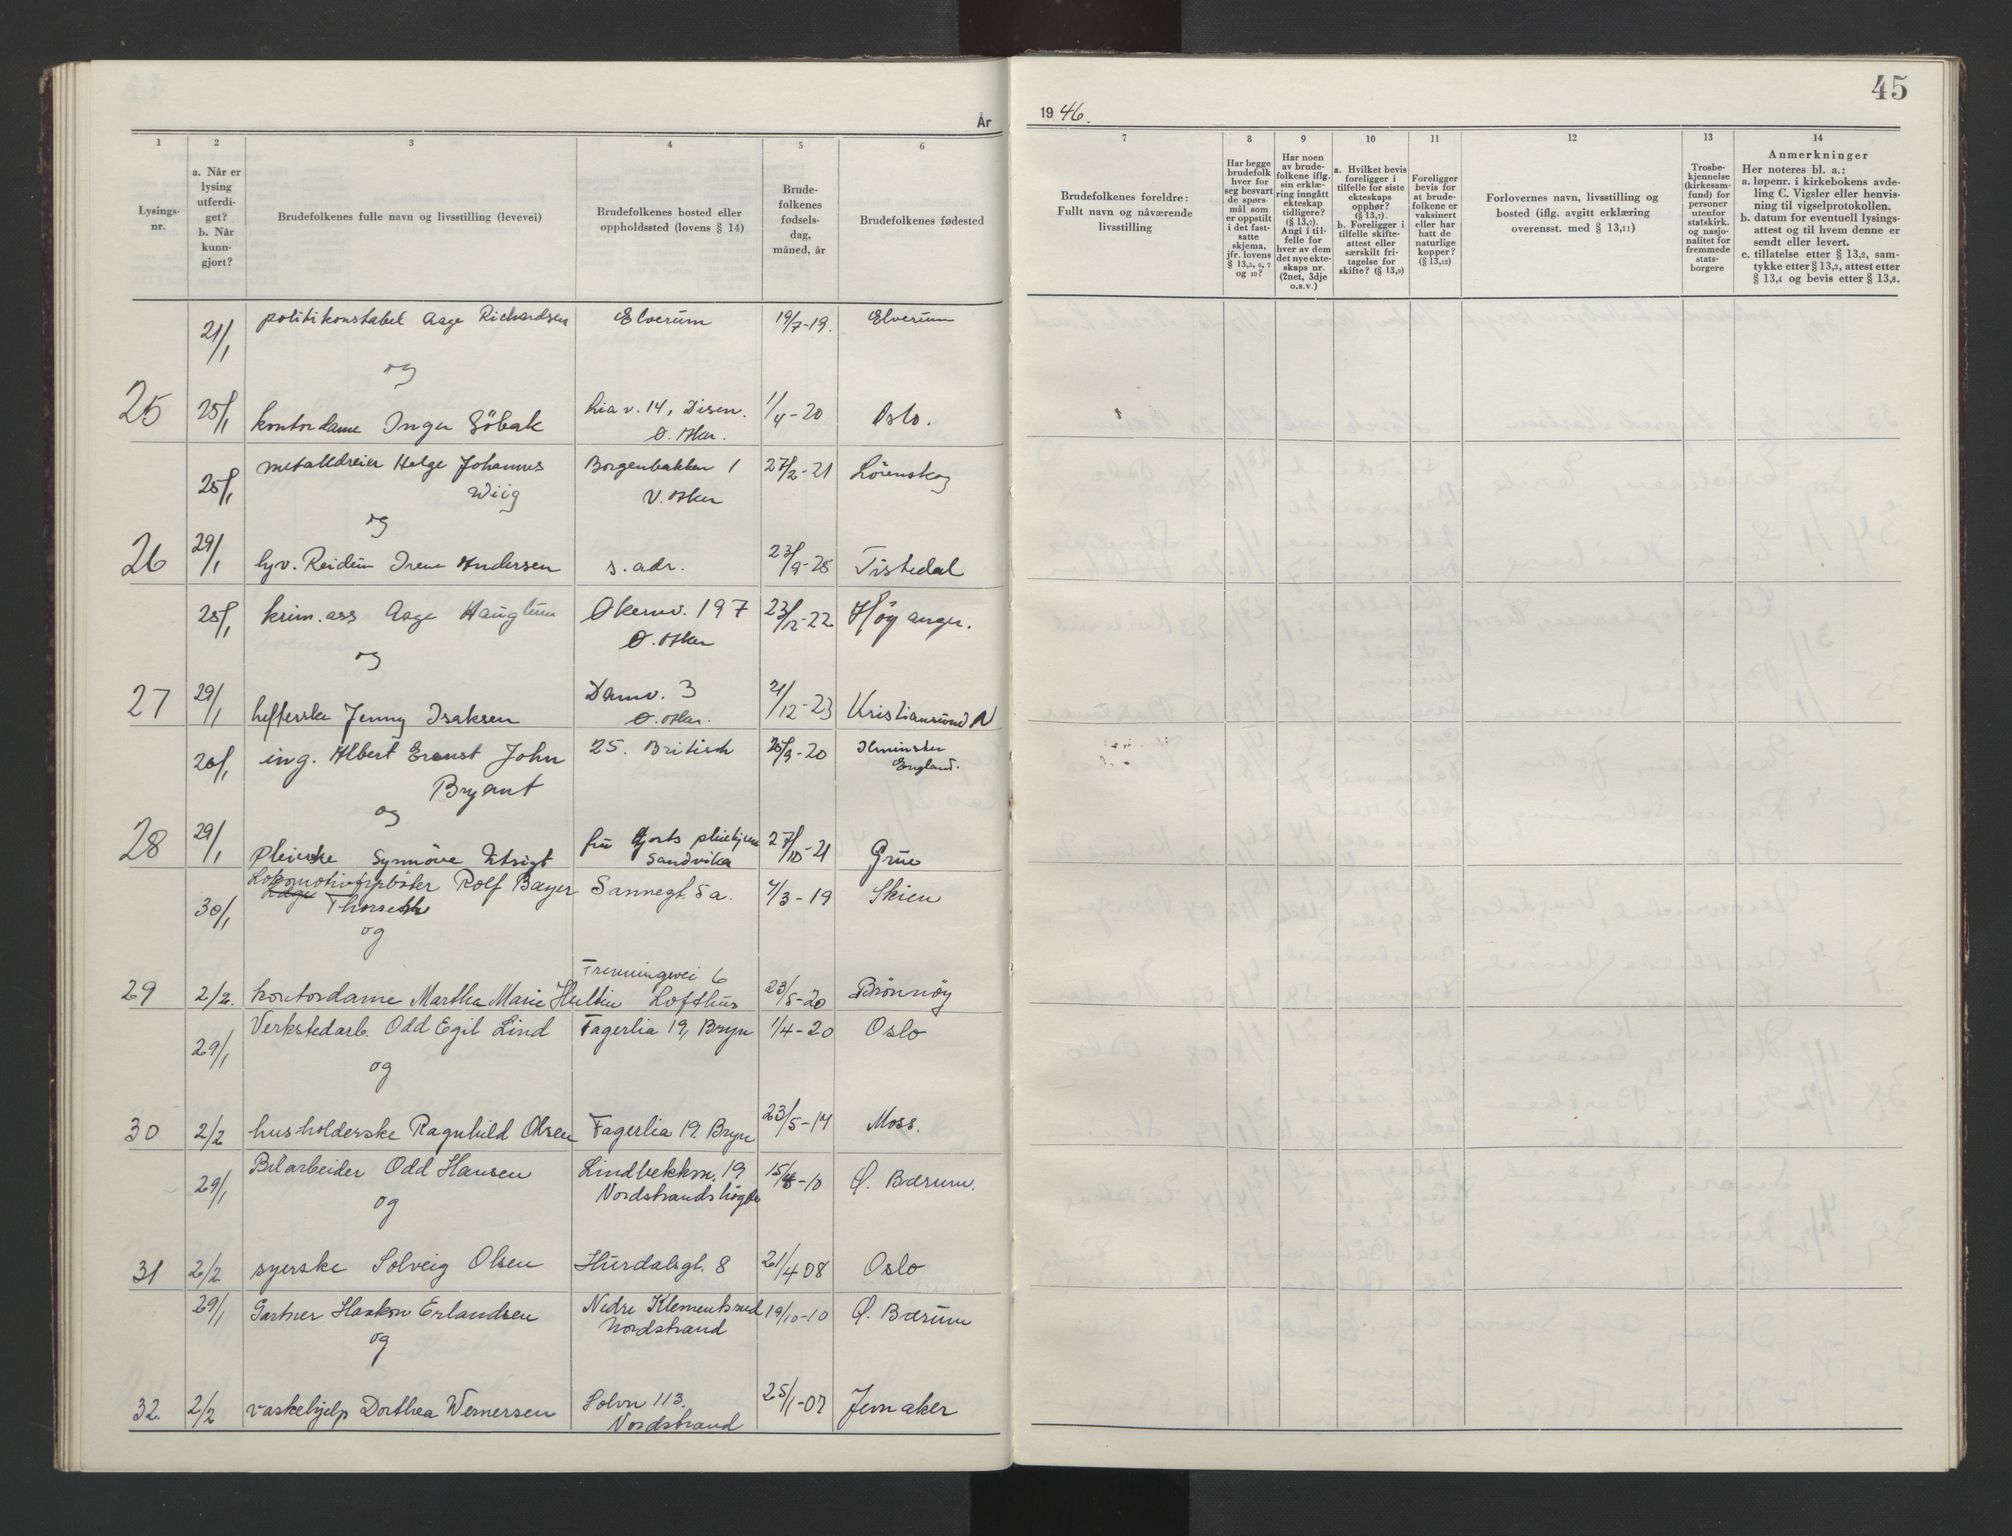 År
1 2 3 4 5 6
Lysings-
nr.
a. Når er
lysing
utferdi-
get?
b. Når
kunn-
gjort?
Brudefolkenes fulle navn og livsstilling (levevei)
Brudefolkenes bosted eller
oppholdssted (lovens § 14)
Brude-
folkenes
fødsels-
dag,
måned, år
Brudefolkenes fødested
21/1 politikonstabel Aage Richardsen Elverum 19/7-19. Elverum
og
25 25/1 kontordame Inger Söbak Lia v. 14, Disen. 1/4-20 Oslo.
Ø. Aker.
25/1 metalldreier Helge Johannes Borgenbakken 1 27/2-21 Lörenskog
Wiig V. Aker
og
26 29/1 hyv. Reidun Irene Andersen s. adr. 23/9-25 Tistedal
25/1 krim.ass Aage Hauglum Økernv. 197 23/12-22 Høyanger.
Ø. Aker
og
27 29/1 hefterske Jenny Isaksen Damv. 3 21/12-23 Kristiansund N
Ø. Aker.
26/1 ing. Albert Ernest John 25. British 25/9-20 Ilminster
Bryant England.
og
28 29/1 pleierske Synnöve Utsigt fru Hjorts pleiehjem 27/10-21 Grue
Sandvika
30/1 Lokomotivfyrbøter Rolf Bøyer Sannegt. 5a. 7/3-19 Skien
Thorseth
og
Trenningvei 6
29 2/2. kontordame Martha Marie Hultin Lofthus 23/5-20 Brönnöy
29/1 Verkstedarb. Odd Egil Lind Fagerlia 19, Bryn 1/4-20 Oslo
og
30 2/2 husholderske Ragnhild Olsen Fagerlia 19. Bryn 23/5-14 Moss.
29/1 Bilarbeider Odd Hansen Lindbekkvn. 19 15/8-10 Ø. Bærum.
Nordstrandshögda
og
31 2/2 syerske Solveig Olsen Hurdalsgt. 8 21/4 08 Oslo
29/1 Gartner Haakon Erlandsen Nedre Klementsrud 19/10-10 Ø. Bærum
Nordstrand
og
32. 2/2 vaskehjelp Dorthea Wernersen Solvn 113. 25/1-07 Jevnaker
Nordstrand
45
1946.
7 8 9 10 11 12 13 14
Brudefolkenes foreldre:
Fullt navn og nåværende
livsstilling
Har begge
brudefolk
hver for
seg besvart
de spørs-
mål som
er oppstilt
i det fast-
satte
skjema,
jfr. lovens
§ 13,5, 6, 7
og 10?
Har noen
av brude-
folkene iflg.
sin erklæ-
ring inngått
ekteskap
tidligere?
(§ 13,7).
Angi i til-
felle for
hver av dem
det nye ekte-
skaps nr.
(2net, 3dje
o.s.v.)
a. Hvilket bevis
foreligger i
tilfelle for siste
ekteskaps
opphør?
(§ 13,7).
b. Foreligger i
tilfelle skifte-
attest eller
særskilt fri-
tagelse for
skifte? (§ 13,9)
Foreligger
bevis for
at brude-
folkene er
vaksinert
eller har
hatt de
naturlige
kopper?
(§ 13,12)
Forlovernes navn, livsstilling og
bosted (iflg. avgitt erklæring
overensst. med § 13,11)
Trosbe-
kjennelse
(kirkesam-
fund) for
personer
utenfor
statskirk.
og nasjo-
nalitet for
fremmede
stats-
borgere
Anmerkninger
Her noteres bl. a.:
a. løpenr. i kirkebokens avde-
ling C. Vigsler eller henvis-
ning til vigselprotokollen.
b. datum for eventuell lysings-
attest og til hvem denne er
sendt eller levert.
c. tillatelse etter § 13,2, sam-
tykke etter § 13,3, attest etter
§ 13,4 og bevis etter § 13,8.